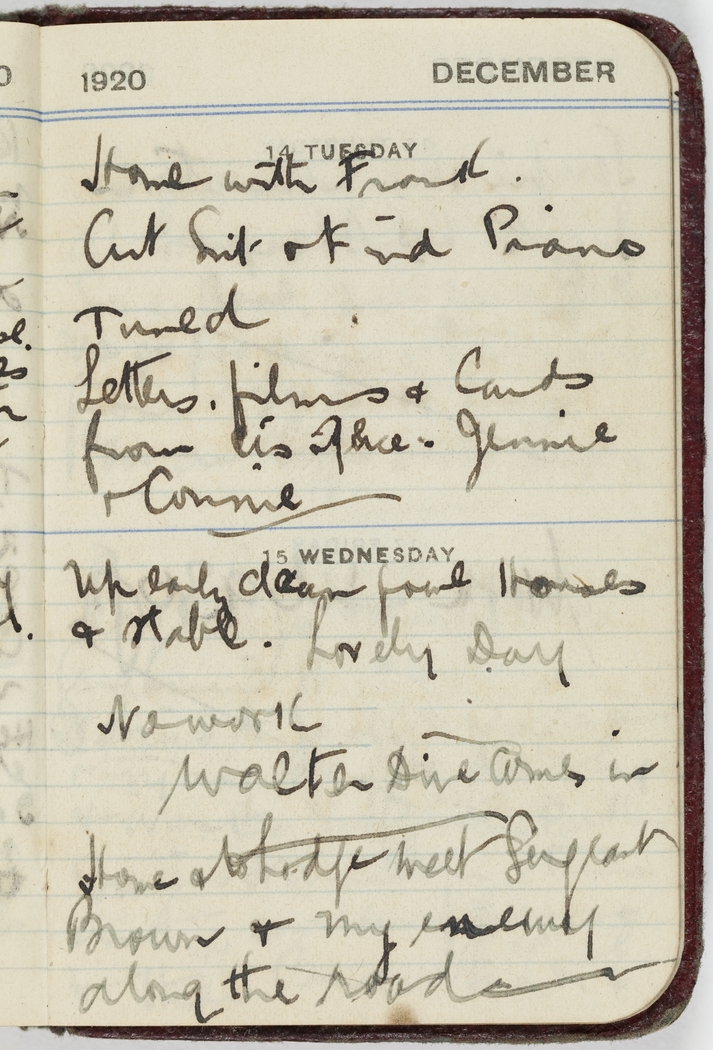 1920 DECEMBER
14 TUESDAY
Home with Frank.
Cut Suit out and Piano
Tuned
Letters, films & Cards
from Jennie
& Connie
15 WEDNESDAY
Up early clean fowl Houses
& stable. Lovely Day
No work
Walter Arms in
Home & to Lodge meet Sergeant
Brown & my enemy
along the road